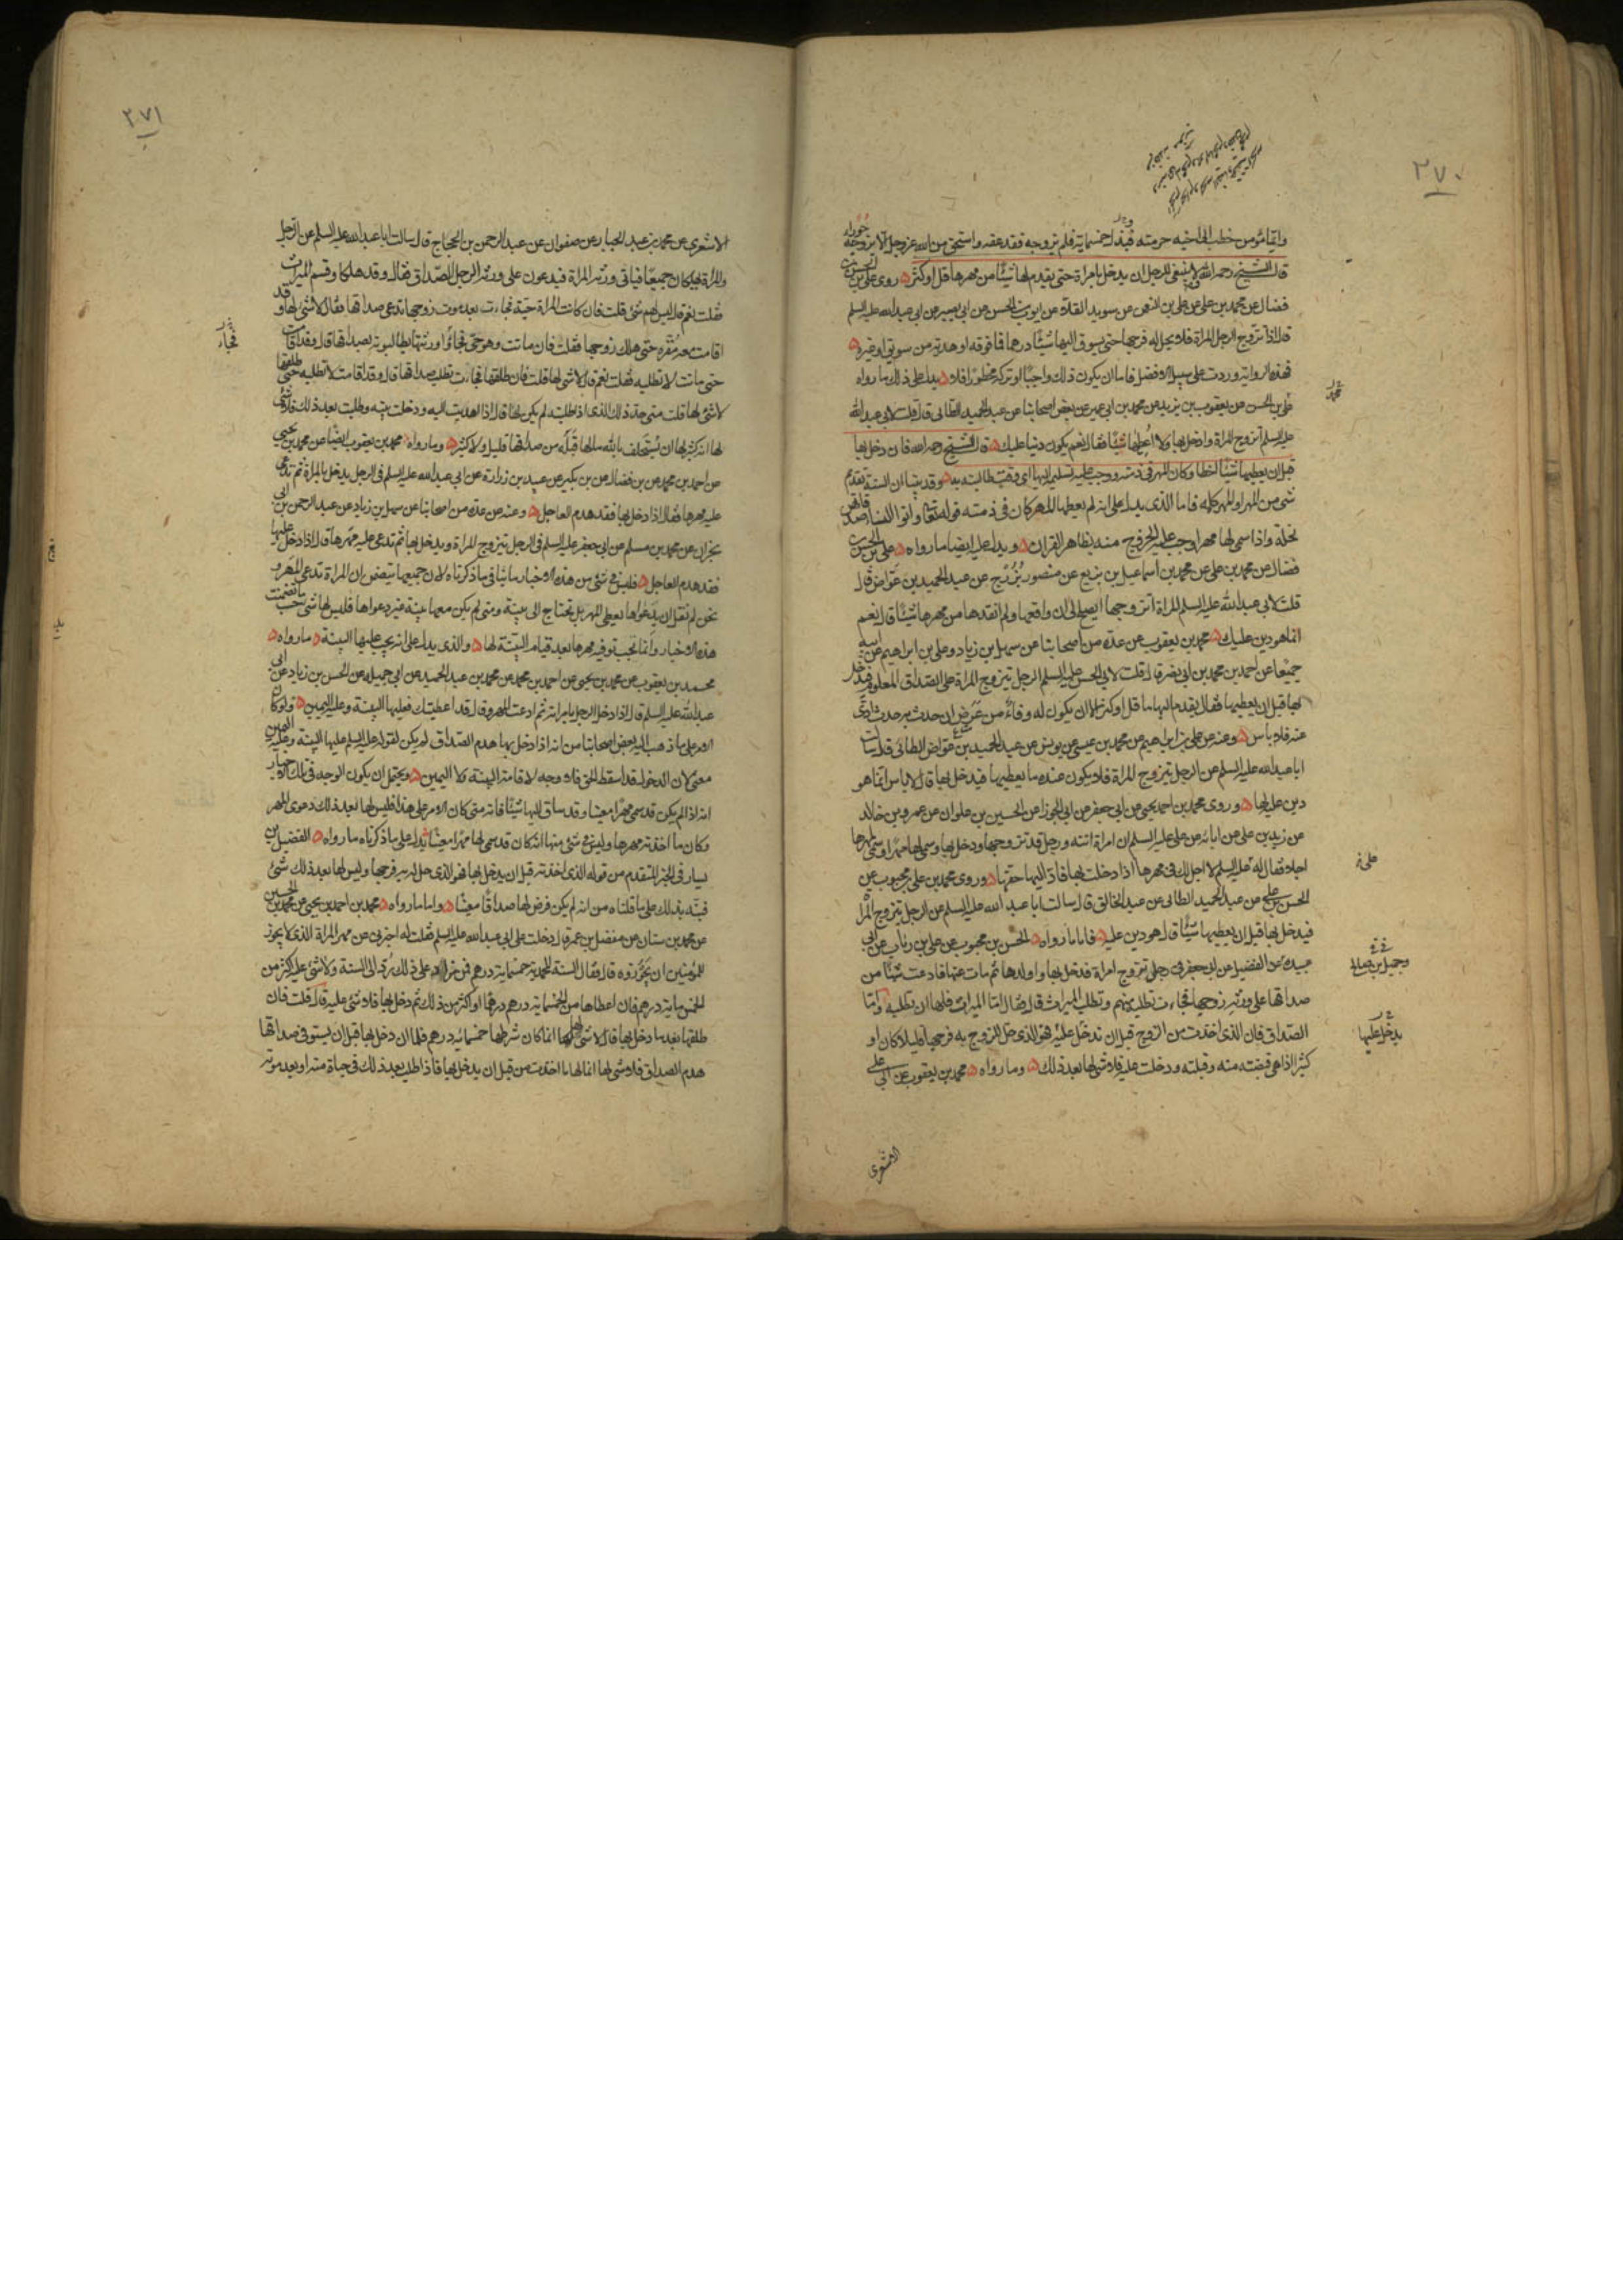 ٢٧٠
وايما مؤمن خطب الى اخيه حرمته فبذل خمسمائة فلم يزوجه فقد عقه واستحق من الله عزوجل الا يزوجه حوراء
قال الشيخ رحمه الله ولا ينبغي للرجل ان يدخل بامراة حتى يقدم لها شيئا من مهرها قل او كثر روى علي بن الحسن بن
فضال عن محمد بن علي عن علي بن النعمن عن سويد القلاء عن ايوب بن الحسن عن ابي بصير عن ابي عبد الله عليه السلم
قال اذا تزوج الرجل المراة فلا يحل له فرجها حتى يسوق اليها شيئا درهما فما فوقه او هدية من سويق او غيره
فهذه الرواية وردت على سبيل الافضل فاما ان يكون ذلك واجبا او تركه محظورا فلا يدل على ذلك ما رواه
علي بن الحسن عن يعقوب بن يزيد عن محمد بن ابي عمير عن بعض اصحابنا عن عبد الحميد الطائى قال قلت لابي عبد الله
عليه السلم اتزوج المراة وادخل بها ولا اعطيها شيئا فقال نعم يكون دينا عليك قال الشيخ رحمه الله فان دخل بها
قبل ان يعطيها شيئا اخطا وكان المهر في ذمته ووجب عليه تسليمه اليها اي وقت طالبته به وقد بينا ان السنة تقديم
شيء من المهر او المهر كله فاما الذي يدل على انه لم يعطها المهر كان في ذمته قوله تعا واتوا النساء صدقاتهن
نحلة واذا سمى لها مهرا وجب عليه الخروج منه بظاهر القران ويدل عليه ايضا ما رواه علي بن الحسن بن
فضال عن محمد بن علي عن محمد بن اسماعيل بن بزيع عن منصور بزرج عن عبد الحميد بن عواض قال
قلت لابي عبد الله عليه السلم المراة اتزوجها ايصلح لي ان واقعها ولم انقدها من مهرها شيئا قال نعم
انما هو دين عليك محمد بن يعقوب عن عدة من اصحابنا عن سهل بن زياد وعلي بن ابراهيم عن ابيه
جميعا عن احمد بن محمد بن ابي نصر قال قلت لابي الحسن عليه السلم الرجل يتزوج المراة على الصداق المعلوم فيدخل
بها قبل ان يعطيها فقال يقدم اليها ما قل او كثر الا ان يكون له وفاء من عرض ان حدث به حدث ادى
عنه فلا باس وعنه عن علي بن ابراهيم عن محمد بن عيسى عن يونس عن عبد الحميد بن عواض الطائى قال سالت
ابا عبد الله عليه السلم عن الرجل يتزوج المراة فلا يكون عنده ما يعطيها فيدخل بها قال لا باس انما هو
دين عليه لها وروى محمد بن احمد بن يحيى عن ابي جعفر عن ابي الجوزا عن الحسين بن علوان عن عمرو بن خالد
عن زيد بن علي عن ابائه عن علي عليه السلم ان امراة اتته ورجل قد تزوجها ودخل بها وسمى لها مهرا وسمى لمهرها
اجلا فقال له علي عليه السلم لا اجل لك في مهرها اذا دخلت بها فاد اليها حقها وروى محمد بن علي بن محبوب عن
الحسن بن علي عن عبد الحميد الطائى عن عبد الخالق قال سالت ابا عبد الله عليه السلم عن الرجل يتزوج المراة
فيدخل بها قبل ان يعطيها شيئا قال هو دين عليه فاما ما رواه الحسن بن محبوب عن علي بن رئاب عن ابي
عبيدة عن الفضيل عن ابي جعفر في رجل تزوج امراة فدخل بها واولدها ثم مات عنها فادعت شيئا من
صداقها على ورثة زوجها فجاءت تطلبه منهم وتطلب الميراث قال فقال اما الميراث فلها ان تطلبه واما
الصداق فان الذي اخذت من الزوج قبل ان تدخل عليه فهو الذي حل للزوج به فرجها قليلا كان او
كثيرا اذا هي قبضته منه وقبلته ودخلت عليه فلا شيء لها بعد ذلك وما رواه محمد بن يعقوب عن ابي علي
محمد
علي خ
وجميل بن صالح
يدخل عليها
الاشعري
٢٧١
الاشعري عن محمد بن عبد الجبار عن صفوان عن عبد الرحمن بن الحجاج قال سالت ابا عبد الله عليه السلم عن الرجل
والمراة يهلكان جميعا فياتي ورثة المراة فيدعون على ورثة الرجل الصداق فقال وقد هلكا وقسم الميراث
فقلت نعم قال ليس لهم شئ قلت فان كانت المراة حية فجاءت بعد موت زوجها تدعي صداقها فقال لا شئ لها وقد
اقامت معه مقرة حتى هلك زوجها فقلت فان ماتت وهو حي فجاؤا ورثتها يطالبونه بصداقها قال وقد اقامت
حتى ماتت لا تطلبه فقلت نعم قال لا شئ لها قلت فان طلقها فجاءت تطلب صداقها قال وقد اقامت لا تطلبه حتى طلقها
لا شئ لها قلت متى حد ذلك الذي اذا طلبته لم يكن لها قال اذا اهديت اليه ودخلت بيته وطلبت بعد ذلك فلا شئ
لها انه كثير لها ان يستحلف بالله ما لها قبله من صداقها قليل ولا كثير وما رواه محمد بن يعقوب ايضا عن محمد بن يحيى
عن احمد بن محمد عن بن فضال عن بن بكير عن عبيد بن زرارة عن ابي عبد الله عليه السلم في الرجل يدخل بالمراة ثم تدعي
عليه مهرها فقال اذا دخل بها فقد هدم العاجل وعنه عن عدة من اصحابنا عن سهل بن زياد عن عبد الرحمن بن ابي
نجران عن محمد بن مسلم عن ابي جعفر عليه السلم في الرجل يتزوج المراة ويدخل بها ثم تدعي عليه مهرها قال اذا دخل عليها
فقد هدم العاجل فليس في شئ من هذه الاخبار ما ينافي ما ذكرناه لان جميعها يتضمن ان المراة تدعي المهر و
نحن لم نقل ان بدعواها يعطى المهر بل تحتاج الى بينة ومتى لم يكن معها بينة غير دعواها فليس لها شئ حسب ما تضمنت
هذه الاخبار وانما يجب توفية مهرها بعد قيام البينة لها والذي يدل على انه يجب عليها البينة ما رواه
محمد بن يعقوب عن محمد بن يحيى عن احمد بن محمد عن محمد بن عبد الحميد عن ابي جميلة عن الحسن بن زياد عن ابي
عبد الله عليه السلم قال اذا دخل الرجل بامراته ثم ادعت المهر وقال قد اعطيتك فعليها البينة وعليه اليمين ولو كان
الامر على ما ذهب اليه بعض اصحابنا من انه اذا دخل بها هدم الصداق لم يكن لقوله عليه السلم عليها البينة وعليه اليمين
معنى لان الدخول قد اسقط الحق فلا وجه لاقامة البينة ولا اليمين ويحتمل ان يكون الوجه في تلك الاخبار
انه اذا لم يكن قد سمى مهرا معينا وقد ساق اليها شيئا فانه متى كان الامر على هذا فليس لها بعد ذلك دعوى المهر
وكان ما اخذته مهرها وليس في شئ منها انه كان قد سمى لها مهرا معينا يدل على ما ذكرناه ما رواه الفضيل بن
يسار في الخبر المتقدم من قوله الذي اخذته قبل ان يدخل بها فهو الذي حل له به فرجها وليس لها بعد ذلك شئ
فنبه بذلك على ما قلناه من انه لم يكن فرض لها صداقا معينا واما ما رواه محمد بن احمد بن يحيى عن محمد بن الحسين
عن محمد بن سنان عن مفضل بن عمر قال دخلت على ابي عبد الله عليه السلم فقلت له اخبرني عن مهر المراة الذي لا يجوز
للمؤمنين ان يجوزوه قال فقال السنة المحمدية خمسمائة درهم فمن زاد على ذلك رد الى السنة ولا شئ عليه اكثر من
الخمس ماية درهم فان اعطاها من الخمسماية درهم درهما او اكثر من ذلك ثم دخل بها فلا شئ عليه قال قلت فان
طلقها بعد ما دخل بها قال لا شئ لها انما كان شرطها خمسمائة درهم فلما ان دخل بها قبل ان يستوفي صداقها
هدم الصداق فلا شئ لها انما لها ما اخذت من قبل ان يدخل بها فاذا طلبت بعد ذلك في حياة منه او بعد موته